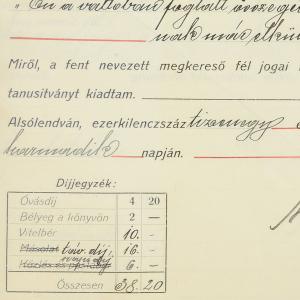 „Én a váltóban foglalt összegen
nak már elkün
Miről, a fent nevezett megkereső fél jogai
tanusitványt kiadtam.
Alsólendván, ezerkilenczszáz tizenegy
harmadik napján.
Dijjegyzék:
Óvásdij 4 20
Bélyeg a könyvön 2 —
Vitelbér 10. —
Másolat táv. díj, 16 —
Közlés és 6 —
Összesen 38. 20